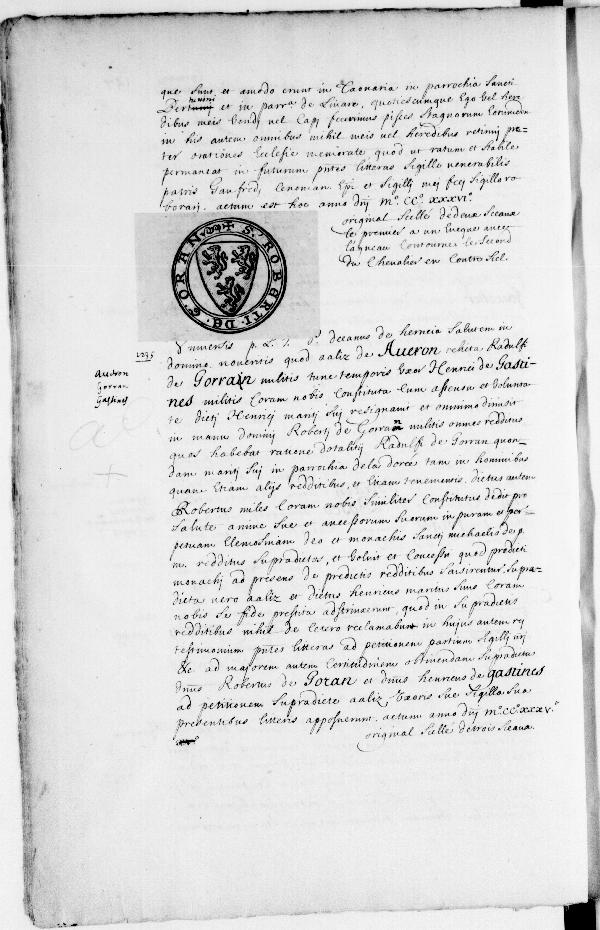 que sunt et amodo erunt in Taonaria in parrochia Sancti
et in parra de Livare, quotiescumque Ego vel here-
dibus meis vendi vel Capi fecerimus pisces stagnorum
in his autem omnibus nihil meis vel heredibus retinui pre-
ter orationes Ecclesie memorate quod ut ratum et stabile
permaneat in futurum pntes litteras Sigillo venerabilis
patris Gaufredj Cenoman. Epi et Sigilli mej feci Sigillo ro
borarj. actum est hoc anno dnj mº. CCº. xxxviº.
original Scelle dedeux Sceaux
le premier a un Eveque avec
lagneau Contourné le Second
du Chevalier en Contre Scel.
S. ROBERTI. DE. GORAN
Vniversis p. L. J. decanus de herneia Salutem in
1235
domino. noveritis quod aaliz de Aueron relicta Radulfi
Aueron
Gorran
Gastines
de Gorrain militis tunc temporis Uxor Henrici de Gasti-
nes militis Coram nobis Constituta Cum assensu et Volunta-
te dictj Henricj maritj Suj resignauit et omnino dimisit
in manu dominj Robertj de Gorran militis omnes redditus
quos habebat ratione dotalitij Radulfi de Gorran quon-
dam maritj Suj in parrochia dela dorée tam in hominibus
quam Etiam alijs redditibus, et Etiam tenementis. dictus autem
Robertus miles Coram nobis Similiter Constitutus dedit pro
Salute anime Sue et ancessorum Suorum in puram et per-
petuam Elemosinam deo et monachis Sanctj michaelis de p.
m. redditus Supradictos, et Voluit et Concessit quod predicti
monachj ad presens de predictis redditibus Saisirentur. Supra-
dicta vero aaliz et dictus henricus maritus Suus Coram
nobis Se fide prestita adstrinxerunt, quod in Supradictis
redditibus nihil de Cetero reclamabunt in hujus autem rej
testimonium pntes litteras ad petitionem partium Sigillj nrj
&c. ad majorem autem Certitudinem obtinendam Supradictus
dnus Robertus de Goran et dnus henricus de gastines
ad petitionem Supradicte aaliz Uxoris Sue Sigilla Sua
presentibus litteris apposuerunt. actum anno dnj mº. CCº. xxxvº.
original Scelle detrois Sceaux.